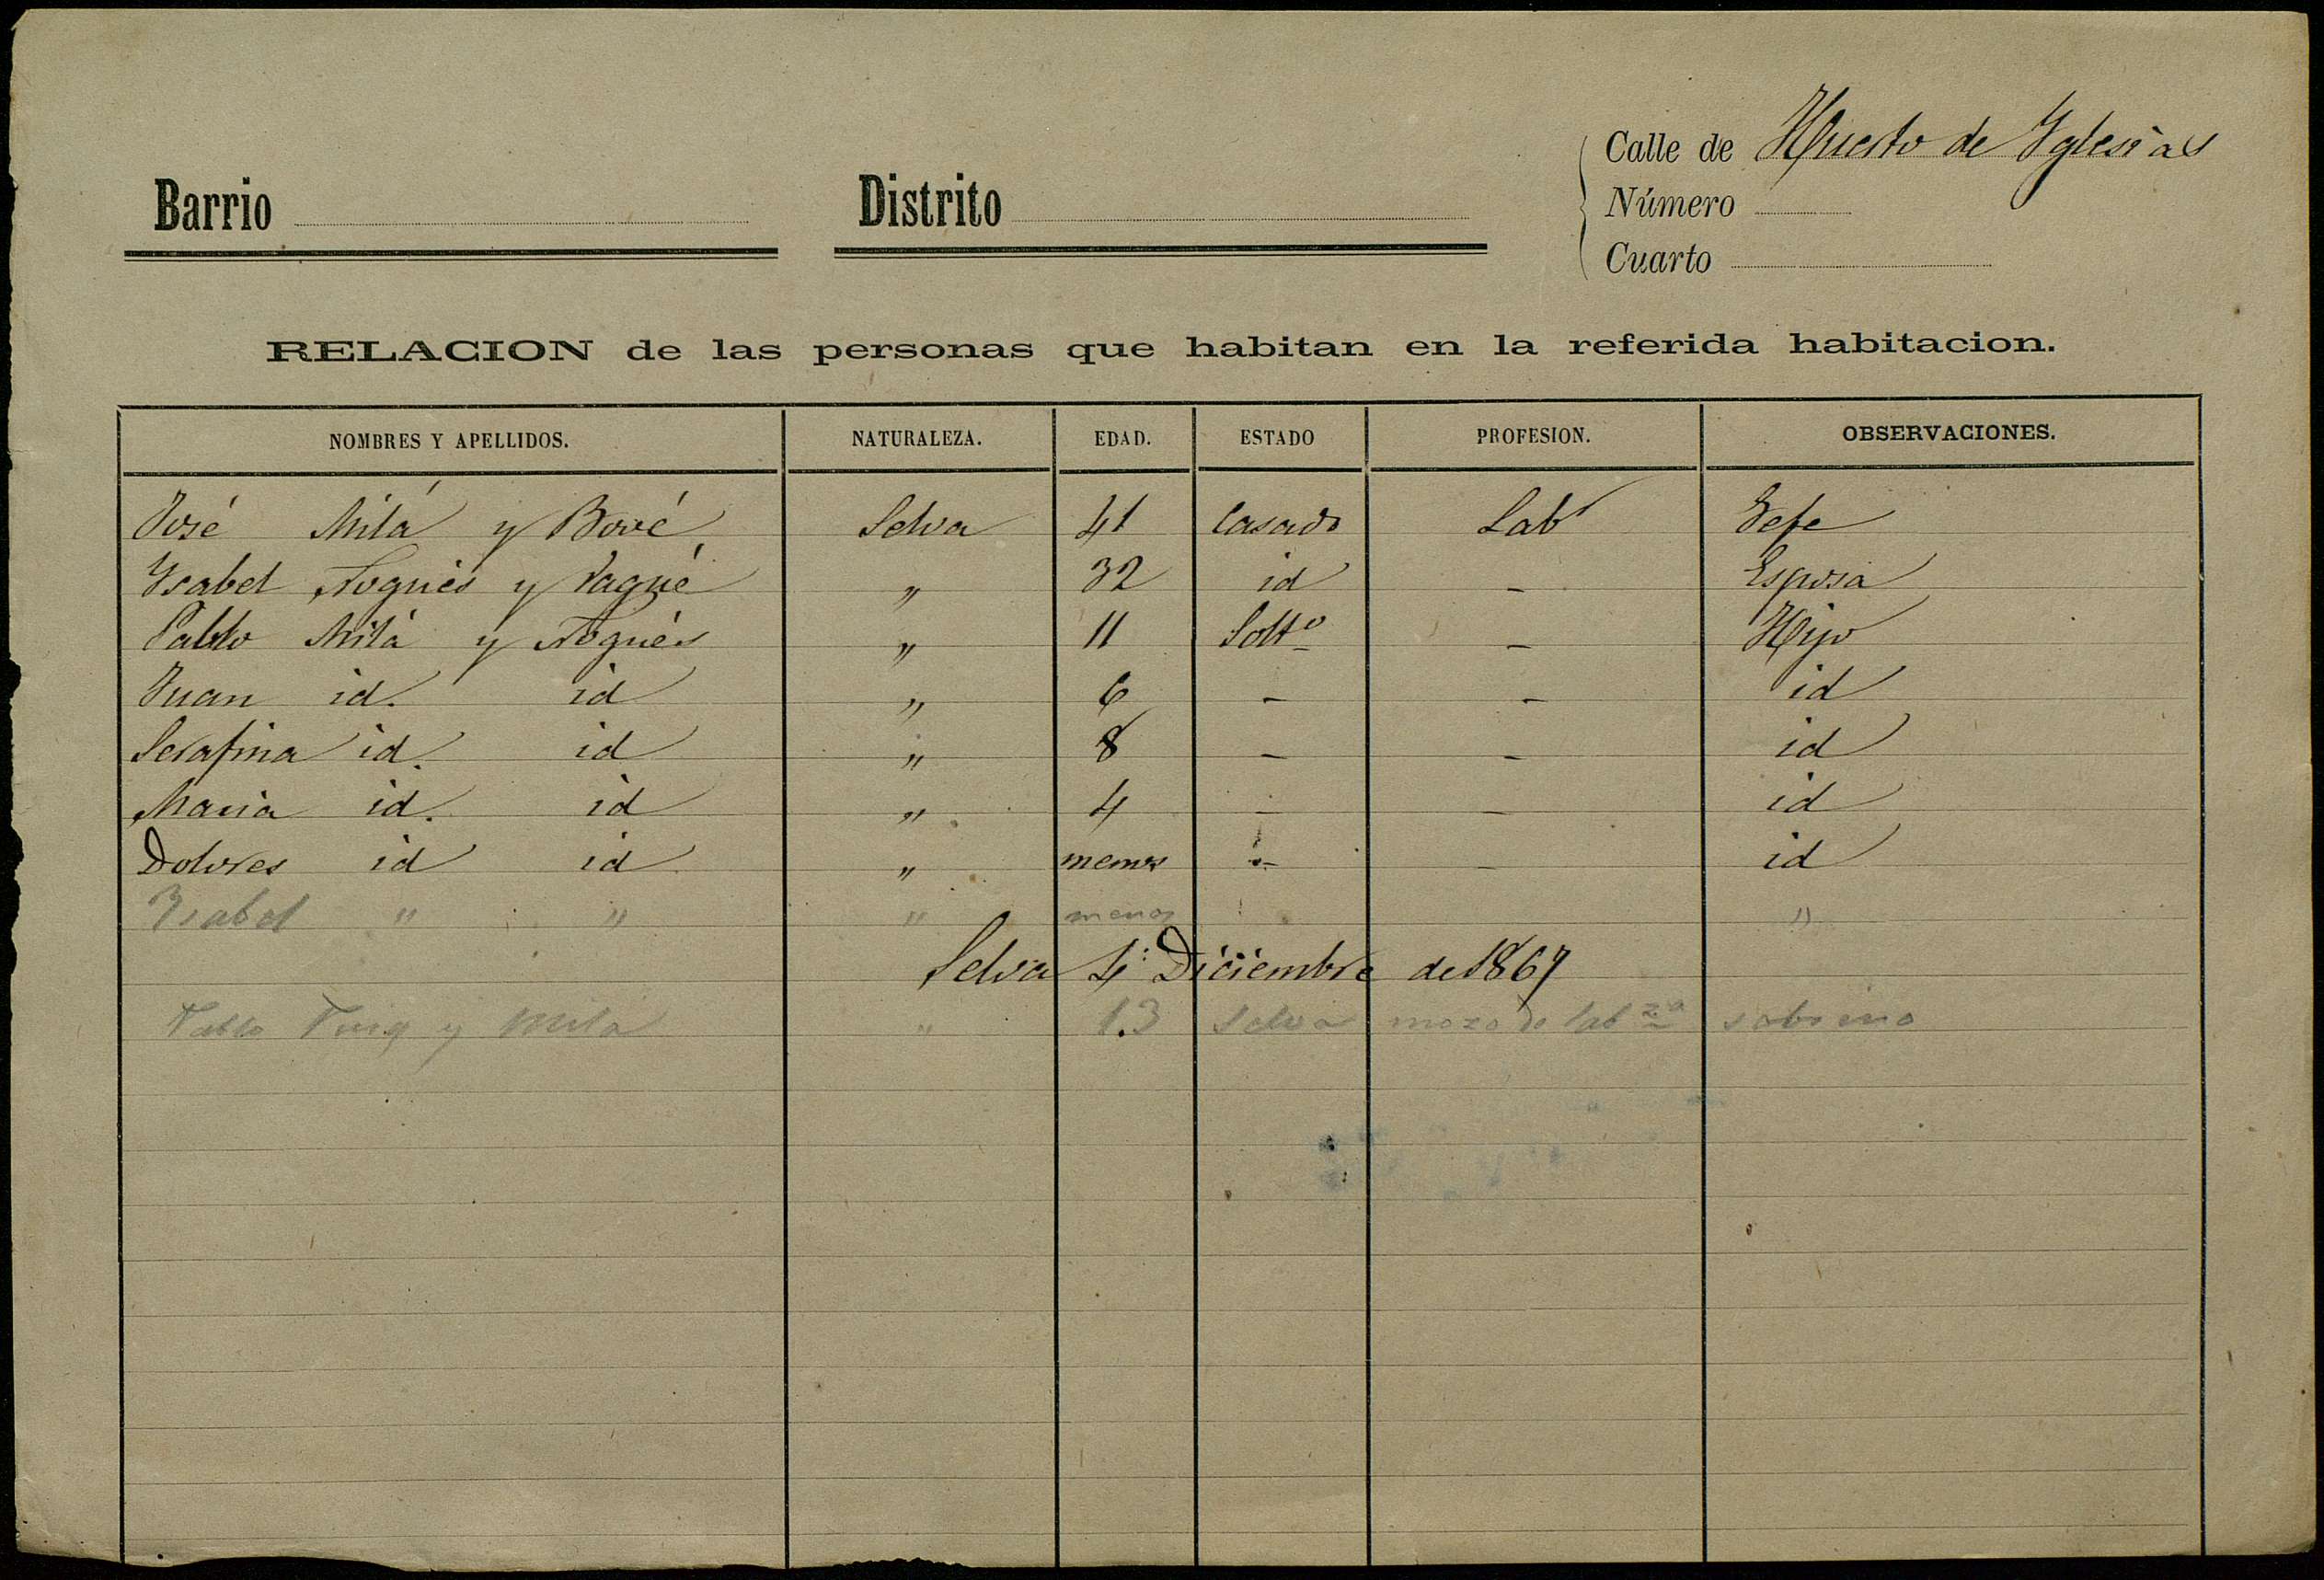 Calle de Huerto de Yglesias
Barrio Distrito Número
Cuarto
RELACION de las personas que habitan en la referida habitacion.
NOMBRES Y APELLIDOS. NATURALEZA. EDAD. ESTADO PROFESION. OBSERVACIONES.
José Milá y Bové Selva 41 Casado Labr Gefe
Ysabel Nogués y Vagué " 32 id - Esposa
Pablo Milá y Nogués " 11 Solto - Hijo
Juan id. id " 6 - - id
Serafina id. id " 8 - - id
Maria id. id " 4 - - id
Dolores id id " menos - - id
Ysabel " " " menos "
Selva 4 Diciembre de 1867
Pablo Puig y Milá " 13 Selva mozo de labza sobrino